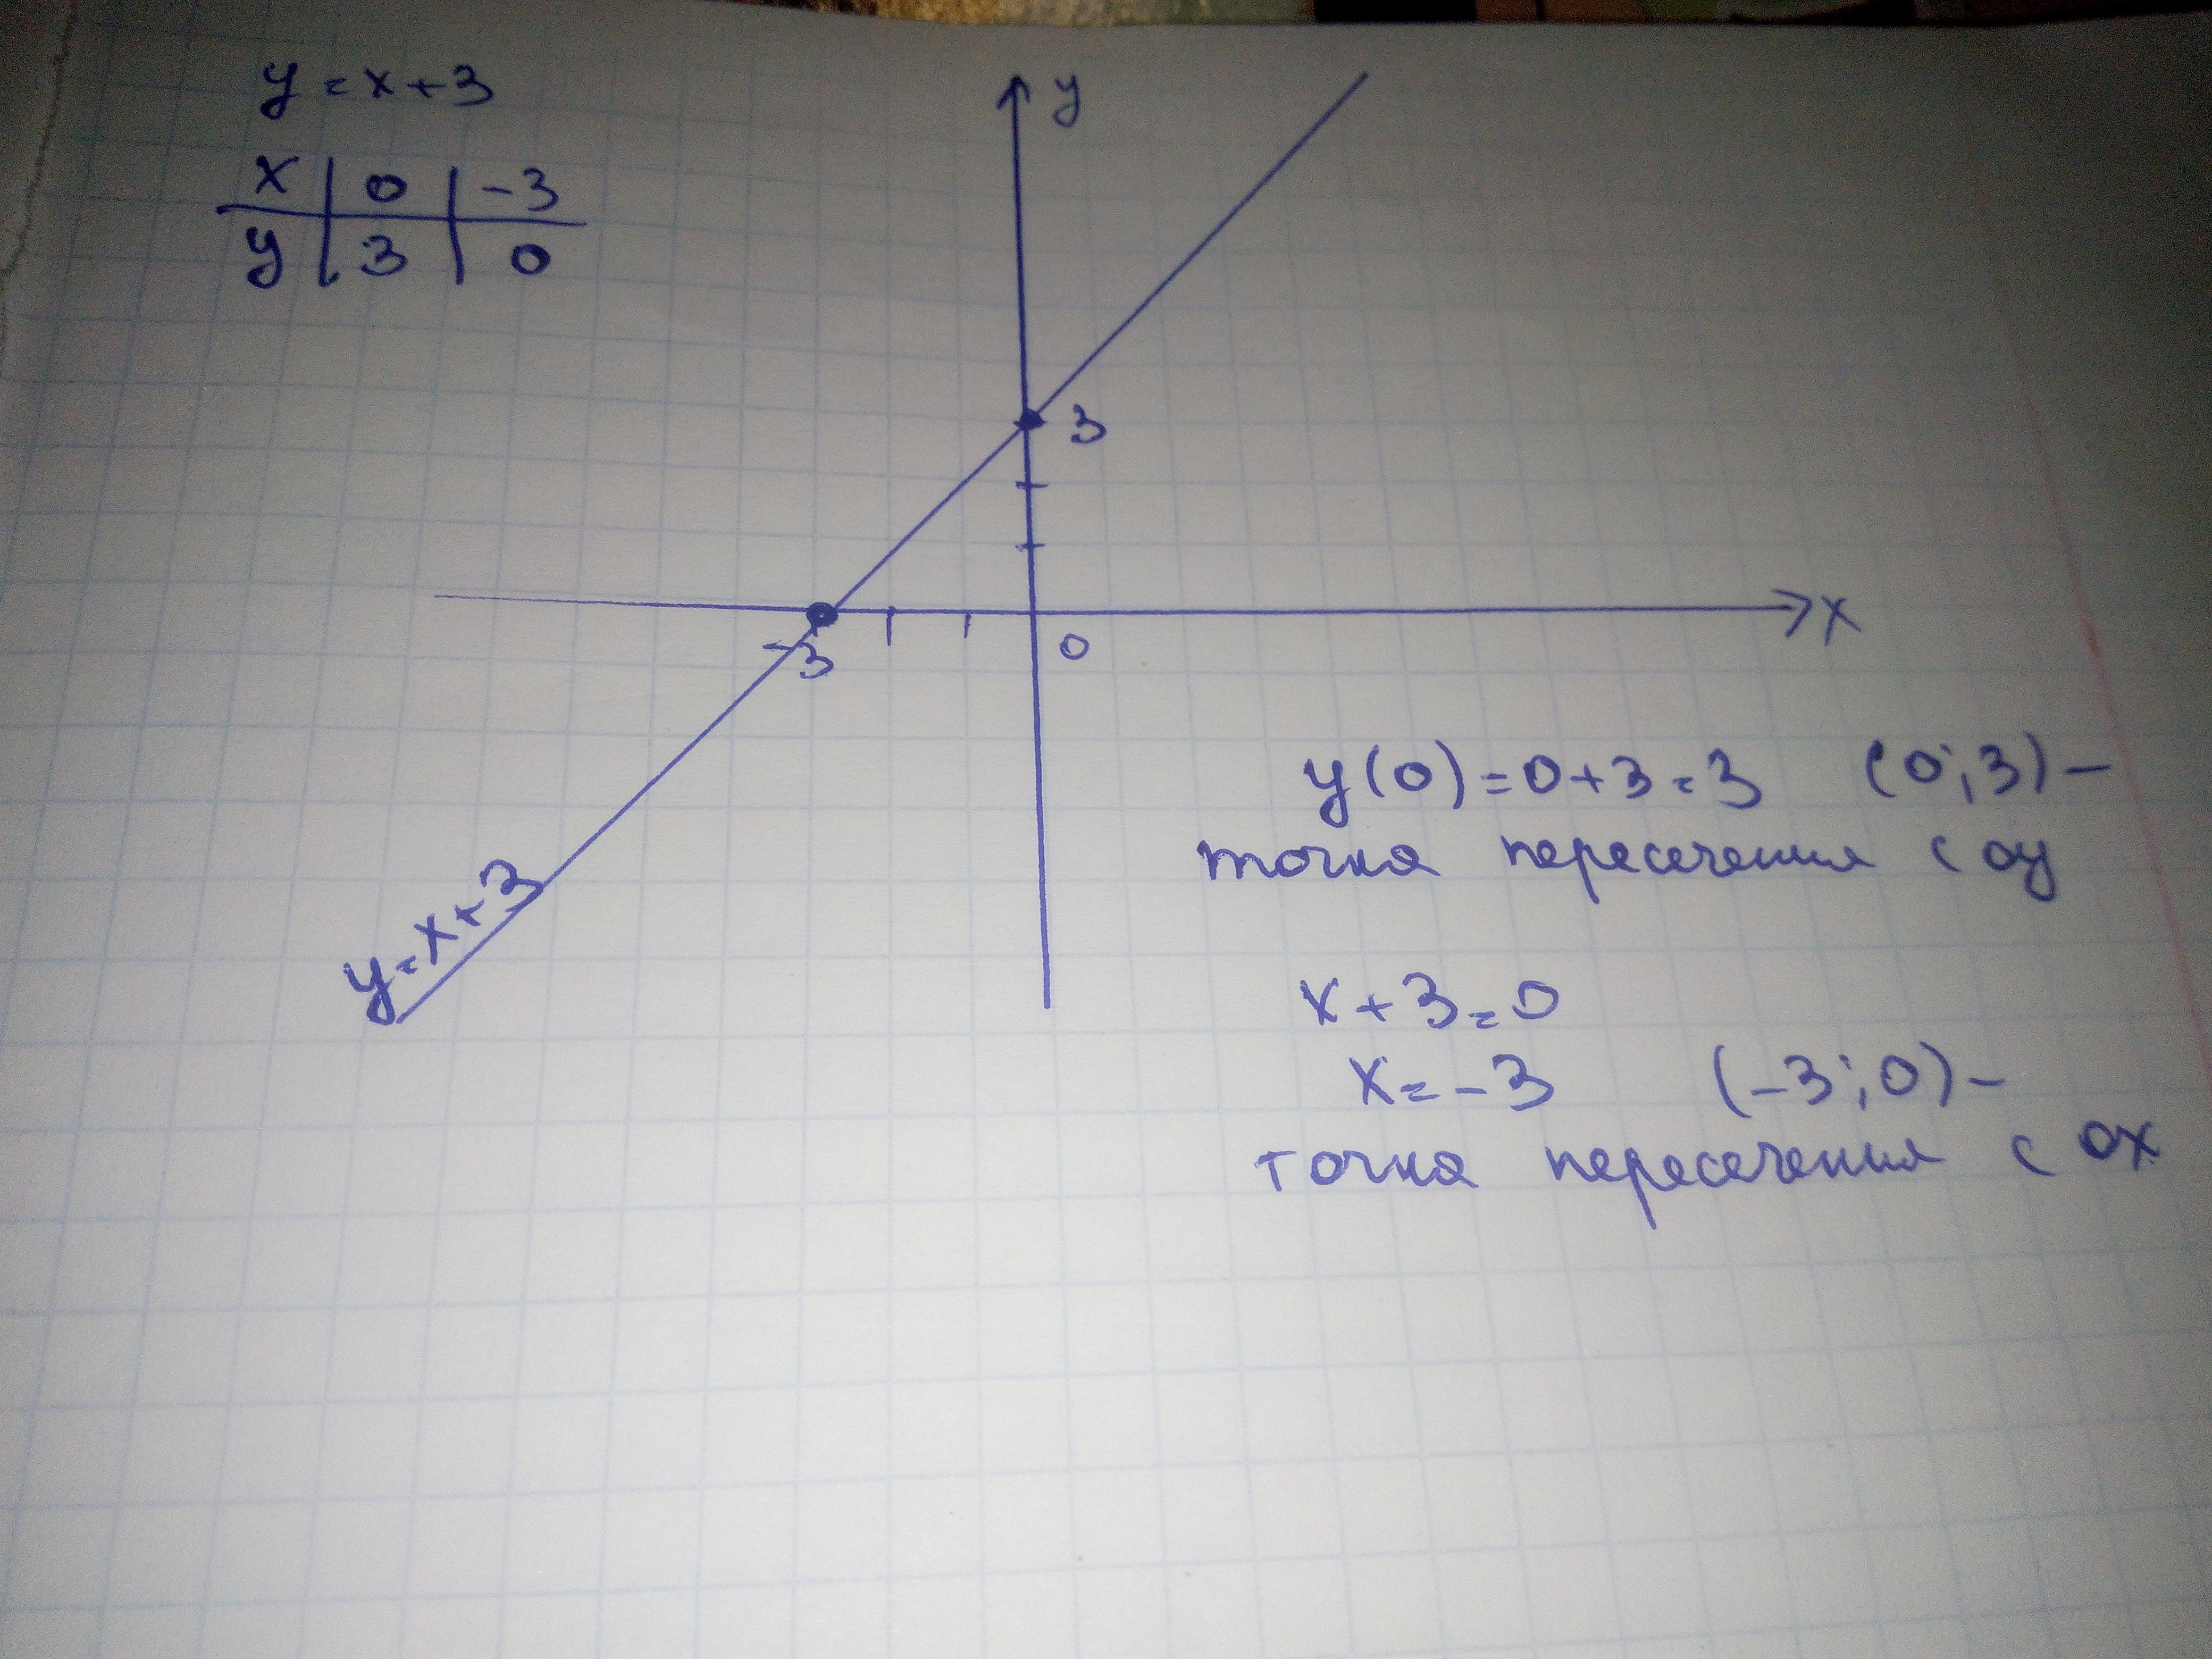 y = x + 3
x | 0 | -3
y | 3 | 0
y
3
-3
0
x
y = x + 3
y(0) = 0 + 3 = 3 (0; 3) -
точка пересечения с oy
x + 3 = 0
x = -3 (-3; 0) -
точка пересечения с ox